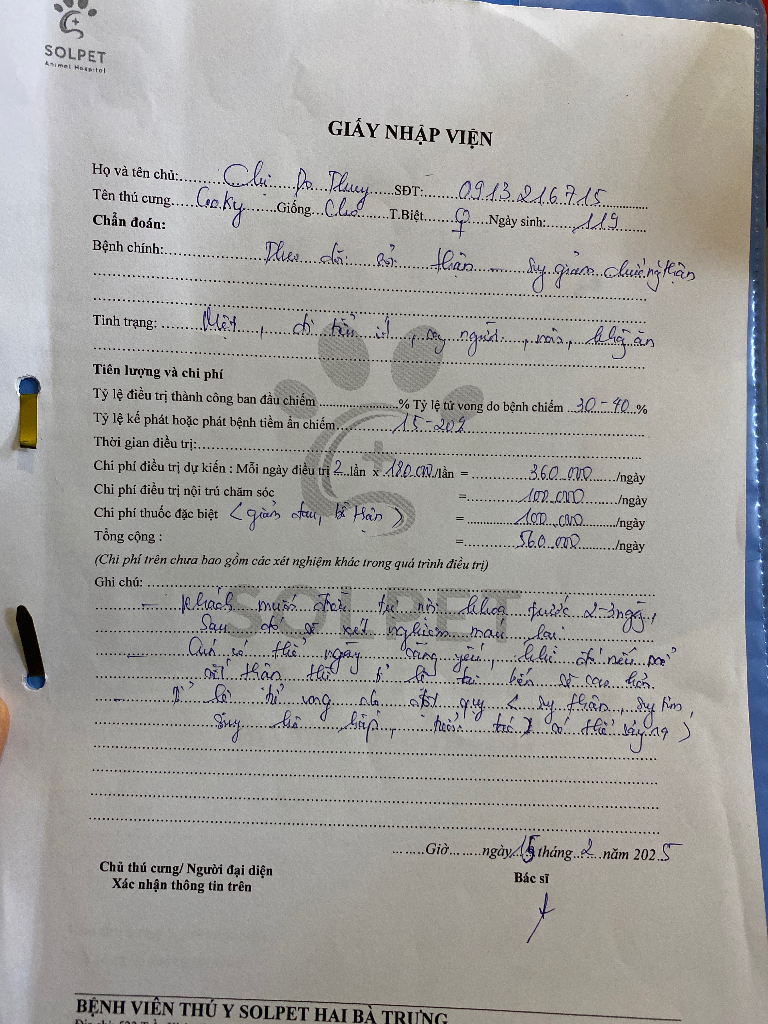 SOLPET
Animal Hospital
GIẤY NHẬP VIỆN
Họ và tên chủ: Chị Do Thuy SĐT: 0913.216.715
Tên thú cưng CooKy Giống Chó T.Biệt ♀ Ngày sinh: 119
Chẩn đoán:
Bệnh chính: Theo dõi sỏi thận - suy giảm chức năng thận
Tình trạng: Mệt, đi tiểu ít, run người, nôn, không ăn
Tiên lượng và chi phí
Tỷ lệ điều trị thành công ban đầu chiếm % Tỷ lệ tử vong do bệnh chiếm 30-40 %
Tỷ lệ kế phát hoặc phát bệnh tiềm ẩn chiếm 15-20%
Thời gian điều trị:
Chi phí điều trị dự kiến : Mỗi ngày điều trị 2 lần x 180.000/lần = 360.000 /ngày
Chi phí điều trị nội trú chăm sóc = 100.000 /ngày
Chi phí thuốc đặc biệt < giảm đau, bổ thận > = 100.000 /ngày
Tổng cộng : = 560.000 /ngày
(Chi phí trên chưa bao gồm các xét nghiệm khác trong quá trình điều trị)
Ghi chú:
- Khách muốn điều trị nội khoa trước 2-3 ngày,
Sau đó sẽ xét nghiệm máu lại
- Cún có thể ngày càng yếu, khi đó nếu mổ
sỏi thận thì tỉ lệ tai biến sẽ cao hơn
- Tỉ lệ tử vong do đột quỵ < suy thận, suy tim,
suy hô hấp, có thể xảy ra >
Giờ ngày 15 tháng 2 năm 2025
Chủ thú cưng/ Người đại diện
Xác nhận thông tin trên
Bác sĩ
BỆNH VIÊN THÚ Y SOLPET HAI BÀ TRƯNG